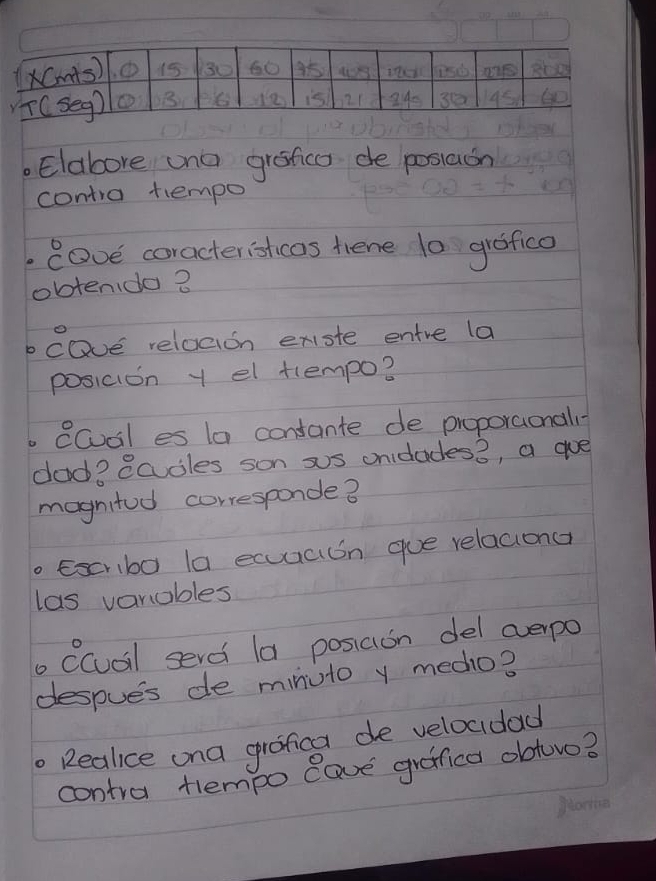 X(mts) 0 15 30 60 75 105 120 150 225 300
T(Seg) 0 3 6 12 15 21 24 30 45 60
• Elabore una gráfica de posición
contra tiempo
• ¿Qué características tiene la gráfica
obtenida?
• ¿Qué relación existe entre la
posición y el tiempo?
• ¿Cuál es la constante de proporcionali-
dad? ¿cuáles son sus unidades?, a que
magnitud corresponde?
• Escriba la ecuación que relaciona
las variables
• ¿Cuál será la posición del cuerpo
después de minuto y medio?
• Realice una gráfica de velocidad
contra tiempo ¿Qué gráfica obtuvo?
Norma